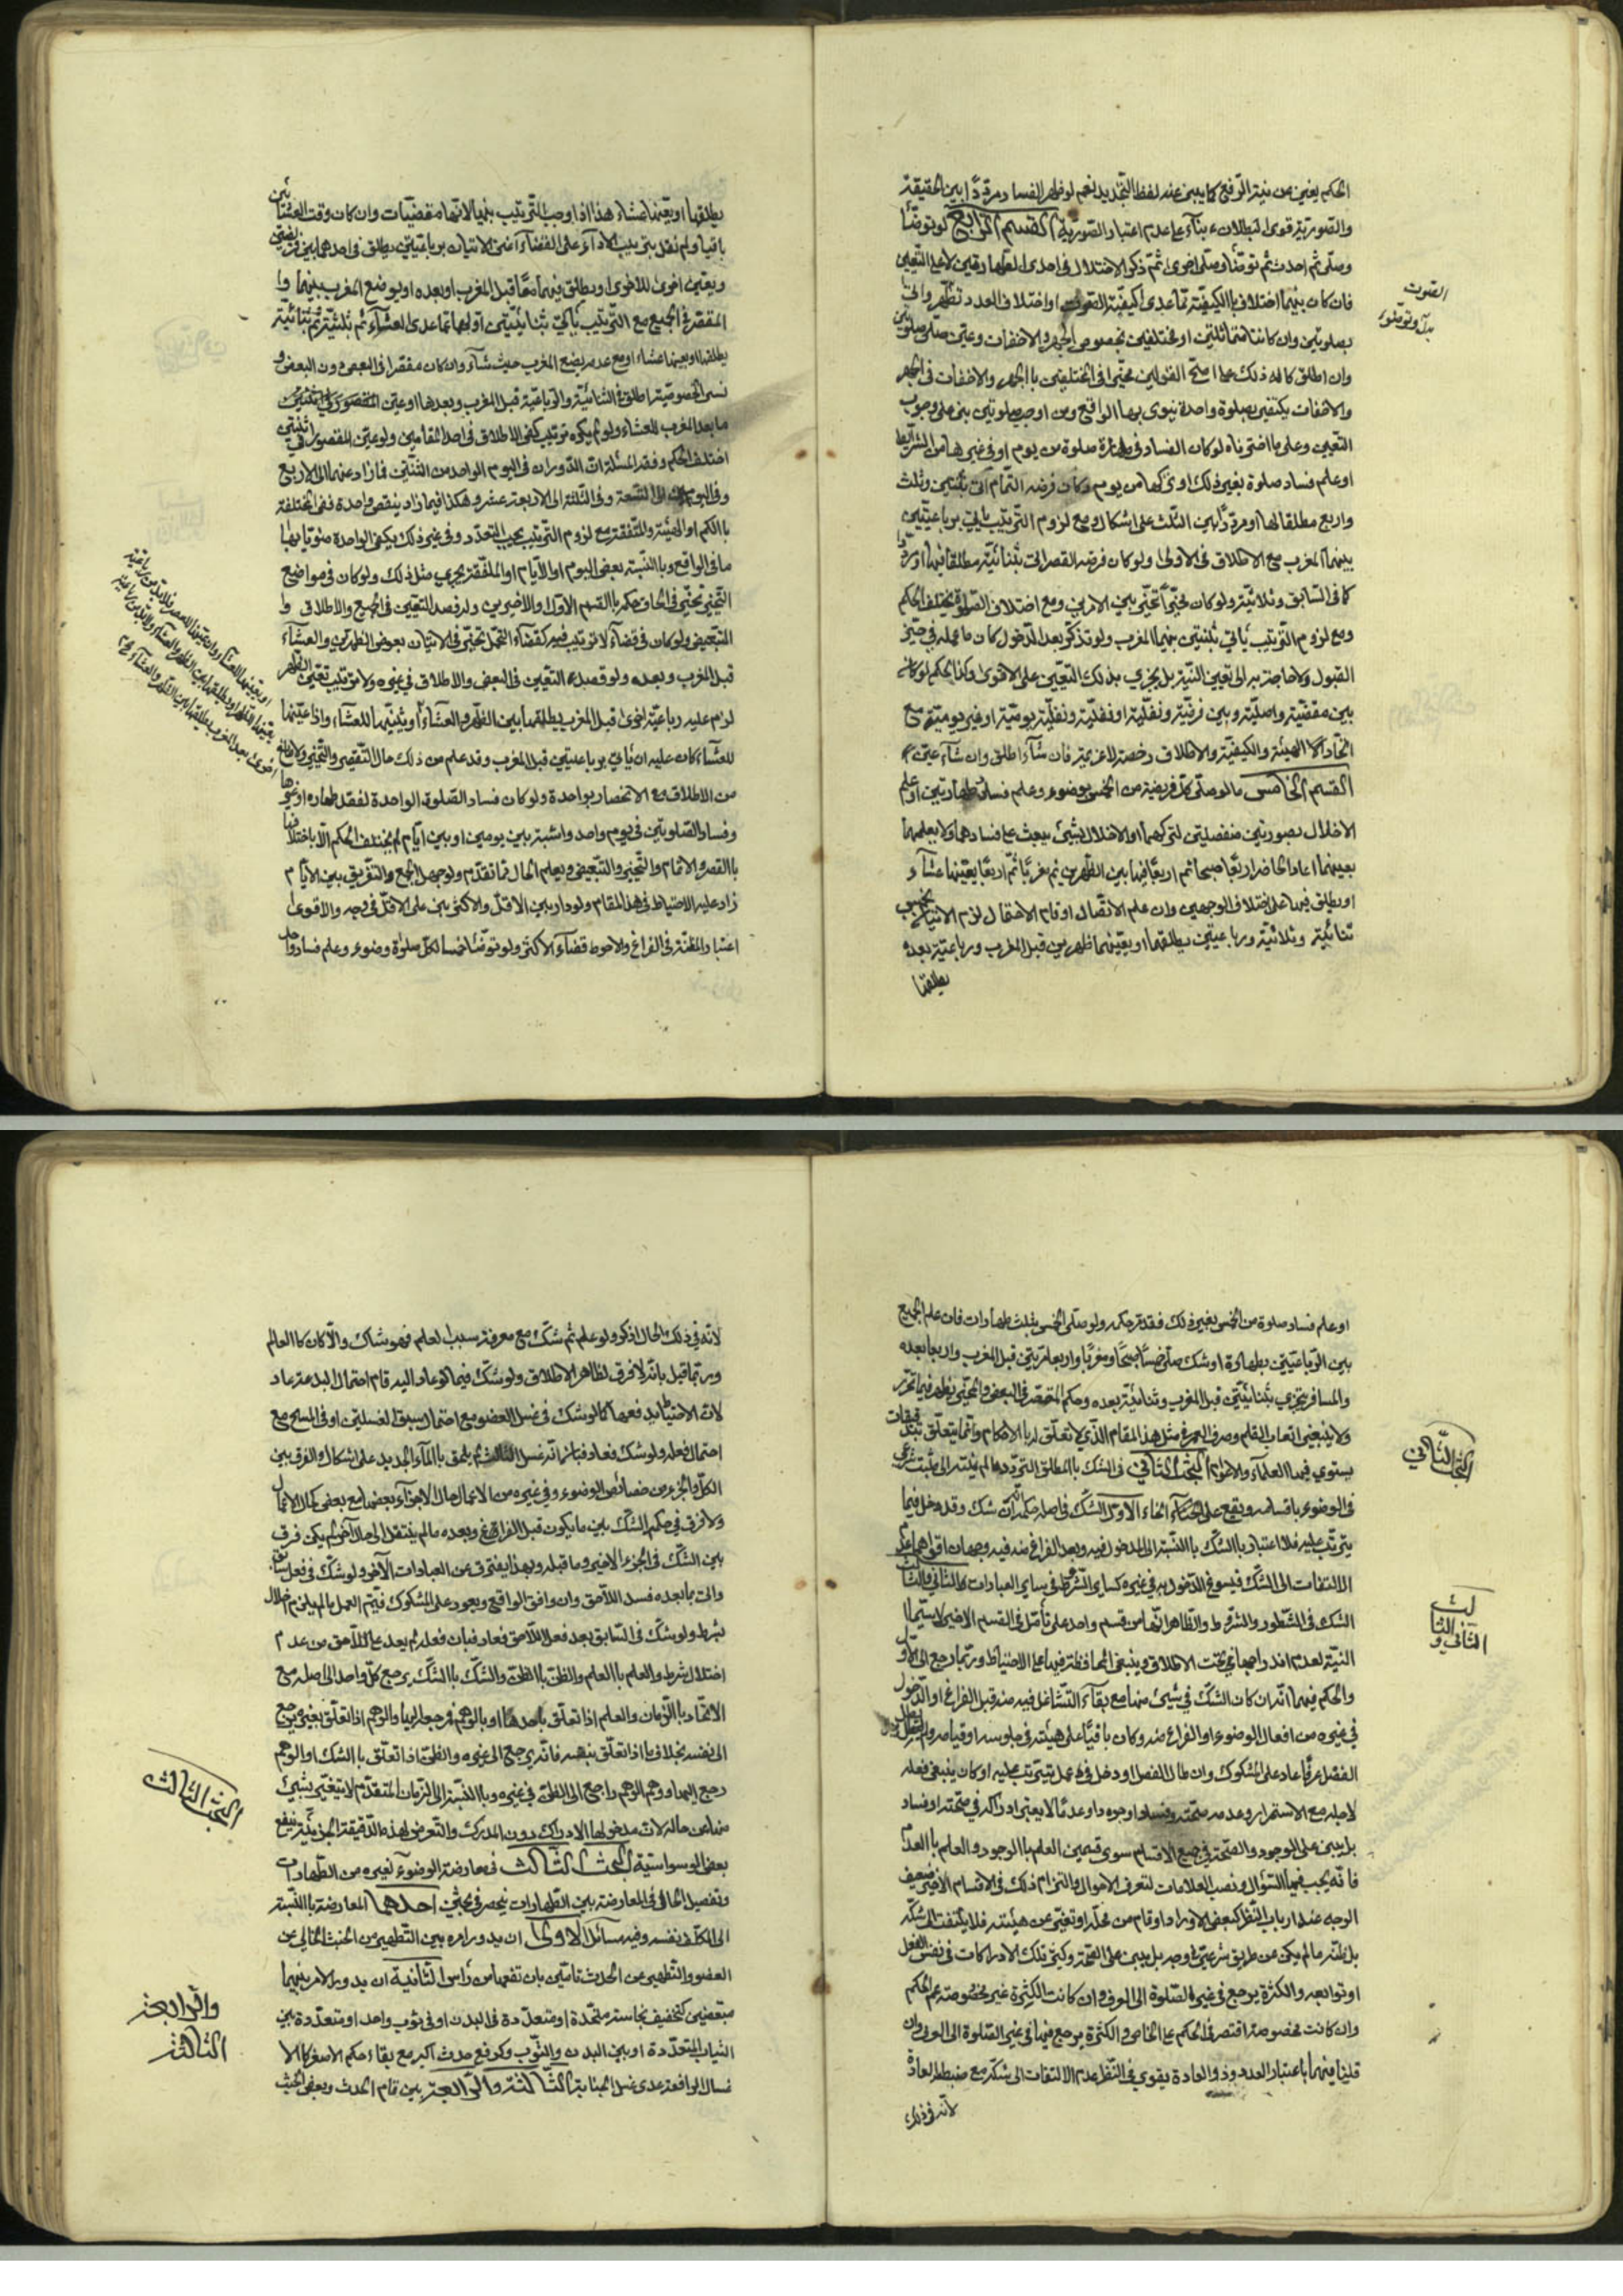 الحكم يغني عن نية الرفع كما ينبئ عنه لفظ التجديد نعم لو ظهر الفساد مرددا بين الحقيقة
والصورية قوى البطلان بناء على عدم اعتبار الصورية القسم الرابع لو توضأ
وصلى ثم احدث ثم توضأ وصلى اخرى ثم ذكر الاختلال في احدى الطهارتين لا على التعيين
فان كان بينهما اختلاف بالكيفية مما عدى كيفية الصوت او اختلاف العدد تطهر واتى
بصلوتين وان كانتا متماثلتين او مختلفتين بخصوص الجهر والاخفات وعين صلى صلوتين
وان اطلق كان له ذلك على اصح القولين مخيرا في المختلفتين بالجهر والاخفات في الجهر
والاخفات يكتفي بصلوة واحدة ينوي بها الواقع ومن اوجب صلوتين بنى على وجوب
التعيين وعلى ما اخترناه لو كان الفساد في طهارة صلوة من يوم او في غيرها من الشرائط
او علم فساد صلوة بغير ذلك او تركها من يوم وكان فرضه التمام اتى بثنتين وثلث
واربع مطلقا لها او مرددا بين الثلث على اشكال ومع لزوم الترتيب ياتي برباعيتين
بينهما المغرب مع الاطلاق في الاولى ولو كان فرضه القصر اتى بثنائية مطلقا فيها او مرددا
كما في السابق وثلاثية ولو كان مخيرا تخير بين الامرين ومع اختلاف الصلوة يختلف الحكم
ومع لزوم الترتيب ياتي بثنتين بينهما المغرب ولو تذكر بعد الدخول كان ما عمله في حيز
القبول ولا حاجة به الى تعيين النية بل يجزي بذلك التعيين على الاقوى وكذا الحكم لو كانه
بين مقضية واصلية وبين فرضية ونفلية او نفلية ونفلية يومية او غير يومية مع
اتحاد الهيئة والكيفية والاطلاق رخصة لا عزيمة فان شاء اطلق وان شاء عين
القسم الخامس ما لو صلى كل فريضة من الخمس بوضوء وعلم فساد طهارتين او علم
الاخلال بصورتين منفصلتين لتركهما او الاخلال بشيء يبعث على فسادهما ولا يعلمهما
بعينهما اعاد الحاضر اربعا صبحا ثم اربعا فيها بين الظهرين ثم مغربا ثم اربعا يعينها عشاء
او يطلق فيها على اختلاف الوجهين وان علم الاتصال او قام الاحتمال لزم الاتيان بخمس
ثنائية وثلاثية ورباعيتين يطلقهما او يعينهما ظهرين قبل المغرب ورباعية بعده
يطلقها
يطلقها او يعينها عشاء هذا اذا اوجب الترتيب بينها لانها مقضيات وان كان وقت العشائين
باقيا ولم نقل بترتيب الاداء على القضاء اغنى الاتيان برباعيتين يطلق في احدهما بين فريضتين
ويعين اخرى للاخرى او يطلق فيهما معا قبل المغرب او بعده او يوضع المغرب بينهما وا
المقصر في الجميع مع الترتيب ياتي بثنائيتين اولهما مما عدى العشاء ثم بثلثية ثم بثنائية
يطلقها او يعينها عشاء او مع عدمه يضع المغرب حيث شاء وان كان مقصرا في البعض دون البعض و
نسي الخصوصية اطلق في الثنائية والرباعية قبل المغرب وبعدها او عين المقصور في اثنتين
ما بعد المغرب للعشاء ولو لم يكن ترتيب كفى الاطلاق في احد المقامين ولو عين المقصور اثنتين
اختلف الحكم وفقه المسئلة ان الدوران في اليوم الواحد من الثنتين فما زاد عنهما الى الاربع
وفي اليومين الى التسعة وفي الثلثة الى الاربعة عشر وهكذا فيما زاد ينقص واحدة ففي المختلفة
بالكم او الهيئة والمتفقة مع لزوم الترتيب يجب التعدد وفي غير ذلك يكفي الواحدة منويا بها
ما في الواقع وبالنسبة بعض اليوم او الايام او الملفقة يجري مثل ذلك ولو كان في مواضع
التخيير تخير في الحاق حكمه بالقسم الاول والاخيرين وله قصد التعيين في الجميع والاطلاق وا
التبعيض ولو كان في قضاء لا ترتيب فيه كقضاء التحمل تخير في الاتيان بعوض الظهرين والعشاء
قبل المغرب وبعده ولو قصد التعيين في البعض والاطلاق في غيره ولا ترتيب تعين الظهر
لزم عليه رباعية اخرى قبل المغرب يطلقها بين الظهر والعشاء او يثنيها للعشاء واذا عينها
للعشاء كان عليه ان ياتي برباعيتين قبل المغرب وقد علم من ذلك حال التقصير والتخيير ولا مانع
من الاطلاق مع الانحصار بواحدة ولو كان فساد الصلوة الواحدة لفقد طهارة او غيرها
وفساد الصلوتين في يوم واحد واشتبه بين يومين او بين ايام لم يختلف الحكم الا باختلافها
بالقصر والاتمام والتخيير والتبعيض ويعلم الحال مما تقدم ولو جهل الجمع والتفريق بين الايام
زاد عليه الاحتياط في هذا المقام ولو دار بين الاقل والاكثر بنى على الاقل في وجه والاقوى
اعتبار المظنة في الفراغ والاحوط قضاء الاكثر ولو توضأ خمسا لكل صلوة وضوء وعلم فساد واحد
او علم فساد صلوة من الخمس بغير ذلك فقد مر حكمه ولو صلى الخمس بثلث طهارات فان علم الجمع
بين الرباعيتين بطهارة او شك صلى خمسا صبحا ومغربا واربعا مرتين قبل المغرب واربعا بعده
والمسافر يجتزي بثنائيتين قبل المغرب وثنائية بعده وحكم المقصر في البعض والمخير يظهر فيما تحرر
ولا ينبغي اتعاب القلم وصرف العمر في مثل هذا المقام الذي لا تعلق له بالاحكام وانما يتعلق بتدقيقات
يستوي فيها العلماء والاعوام البحث الثاني في الشك بالمطلق التردد ما لم ينته الى مثبت شرعي
في الوضوء باقسامه ويقع على انحاء الاول الشك في اصله حكمه انه ان شك وقد دخل فيما
يترتب عليه فلا اعتبار بالشك بالنسبة الى المدخول فيه وبعد الفراغ منه فيه وجهان اقويهما عدم
الالتفات الى الشك فيسوغ الدخول به في غيره كساير الشرائط في ساير العبادات الثاني والثالث
الشك في الشطور والشروط والظاهر انهما من قسم واحد على تأمل في القسم الاخير لا سيما
النية لعدم اندراجها في تحت الاطلاق وينبغي المحافظة فيها على الاحتياط وربما رجع الى الاول
والحكم فيهما انه ان كان الشك في شيء منها مع بقاء التشاغل فيه منه قبل الفراغ او الدخول
في غيره من افعال الوضوء او الفراغ منه وكان باقيا على هيئته في جلوسه او قيامه ولم يطل
الفصل عرفا عاد على المشكوك وان طال الفصل او دخل في عمل يترتب عليه او كان ينبغي فعله
لاجله مع الاستمرار وعدمه صحته وفساد او وجودا وعدما لا يعتبر ادراك في صحته او فساد
بل يبنى على الوجود والصحة في جميع الاقسام سوى قسمين العلم بالوجود والعلم بالعدم
فانه يجب فيهما السؤال ونصب العلامات لتعرف الاحوال والتزام ذلك في الاقسام الاخير ضعيف
الوجه عند ارباب النظر كبعض الاوراد ما وقام من محله او تغير عن هيئته فلا يلتفت الى شكه
بل ظنه ما لم يكن عن طريق شرعي على وجه بل يبنى على الصحة وكثير تلك الادراكات في نفس الفعل
او توابعه والكثرة يرجع في غير الصلوة الى العرف وان كانت الكثرة غير مخصوصة عم الحكم
وان كانت مخصوصة اقتصر في الحكم على الخاص والكثرة يرجع فيها في غير الصلوة الى العرف وان
قلنا فيهما باعتبار العدد وذو العادة يقوي في النظر عدم الالتفات الى شكه مع ضبط العادة
لانه في ذلك
لانه في ذلك الحال اذكر ولو علم ثم شك مع معرفة سبب العلم فهو شاك والا كان كالعالم
وربما قيل بانه لا فرق لظاهر الاطلاق ولو شك فيما لو عاد اليه قام احتمال البدعة عاد
لان الاحتياط يدفعها كما لو شك في غسل العضو مع احتمال سبق الغسلتين او في المسح مع
احتمال فعله ولو شك فعاد فبان انه غسل الثالث لم يلحق بالماء الجديد على اشكال والفرق بين
الكل والجزء من خصائص الوضوء وفي غيره من الاعمال حال الاجزاء بعضها مع بعض كحال الاعمال
ولا فرق في حكم الشك بين ما يكون قبل الفراغ وبعده ما لم ينتقل الى حال آخر لم يكن فرق
بين الشك في الجزء الاخير وما قبله وبهذا يفترق عن العبادات الآخر ولو شك في فعل سابق
واتى بما بعده فسد اللاحق وان وافق الواقع ويعود على المشكوك فيتم العمل ما لم يلزم اخلال
بشرط ولو شك في السابق بعد فعل اللاحق فعاد فبان فعله لم يعد على اللاحق من عدم
اختلال شرط والعلم بالعلم والظن بالظن والشك بالشك يرجع كل واحد الى اصله مع
الاتحاد بالزمان والعلم اذا تعلق باحدها او بالوهم فرجعه اليها والوهم اذا تعلق بغيره يرجع
الى نفسه بخلاف ما اذا تعلق بنفسه فانه يرجع الى غيره والظن اذا تعلق بالشك او الوهم
رجع اليهما ووهم الوهم راجع الى الظن في غيره وبالنسبة الى الزمان المتقدم لا يتغير شيء
منها عن حاله لان مدخولها الادراك دون المدرك والتعرض لهذه الدقيقة الجزئية ينفع
بعض الوسواسية البحث الثالث في معارضة الوضوء لغيره من الطهارات
وتفصيل الحال في المعارضة بين الطهارات ينحصر في بحثين احدهما المعارضة بالنسبة
الى المكلف نفسه وفيه مسائل الاولى ان يدور امره بين التطهير من الخبث الخالي عن
العفو والتطهير عن الحدث تامين بان تفهما من رأس الثانية ان يدور الامر بينهما
مبعضين كتخفيف نجاسة متحدة او متعددة في البدن او في ثوب واحد او متعددة بين
الثياب المتعددة او بين البدن والثوب وكرفع حدث اكبر مع بقاء حكم الاصغر كالا
غسال الرافعة عدى غسل الجنابة الثالثة والرابعة بين تمام الحدث وبعض الخبث
الصوت
البحث الثاني
الثاني والثالث
البحث الثالث
والرابعة
الثالثة